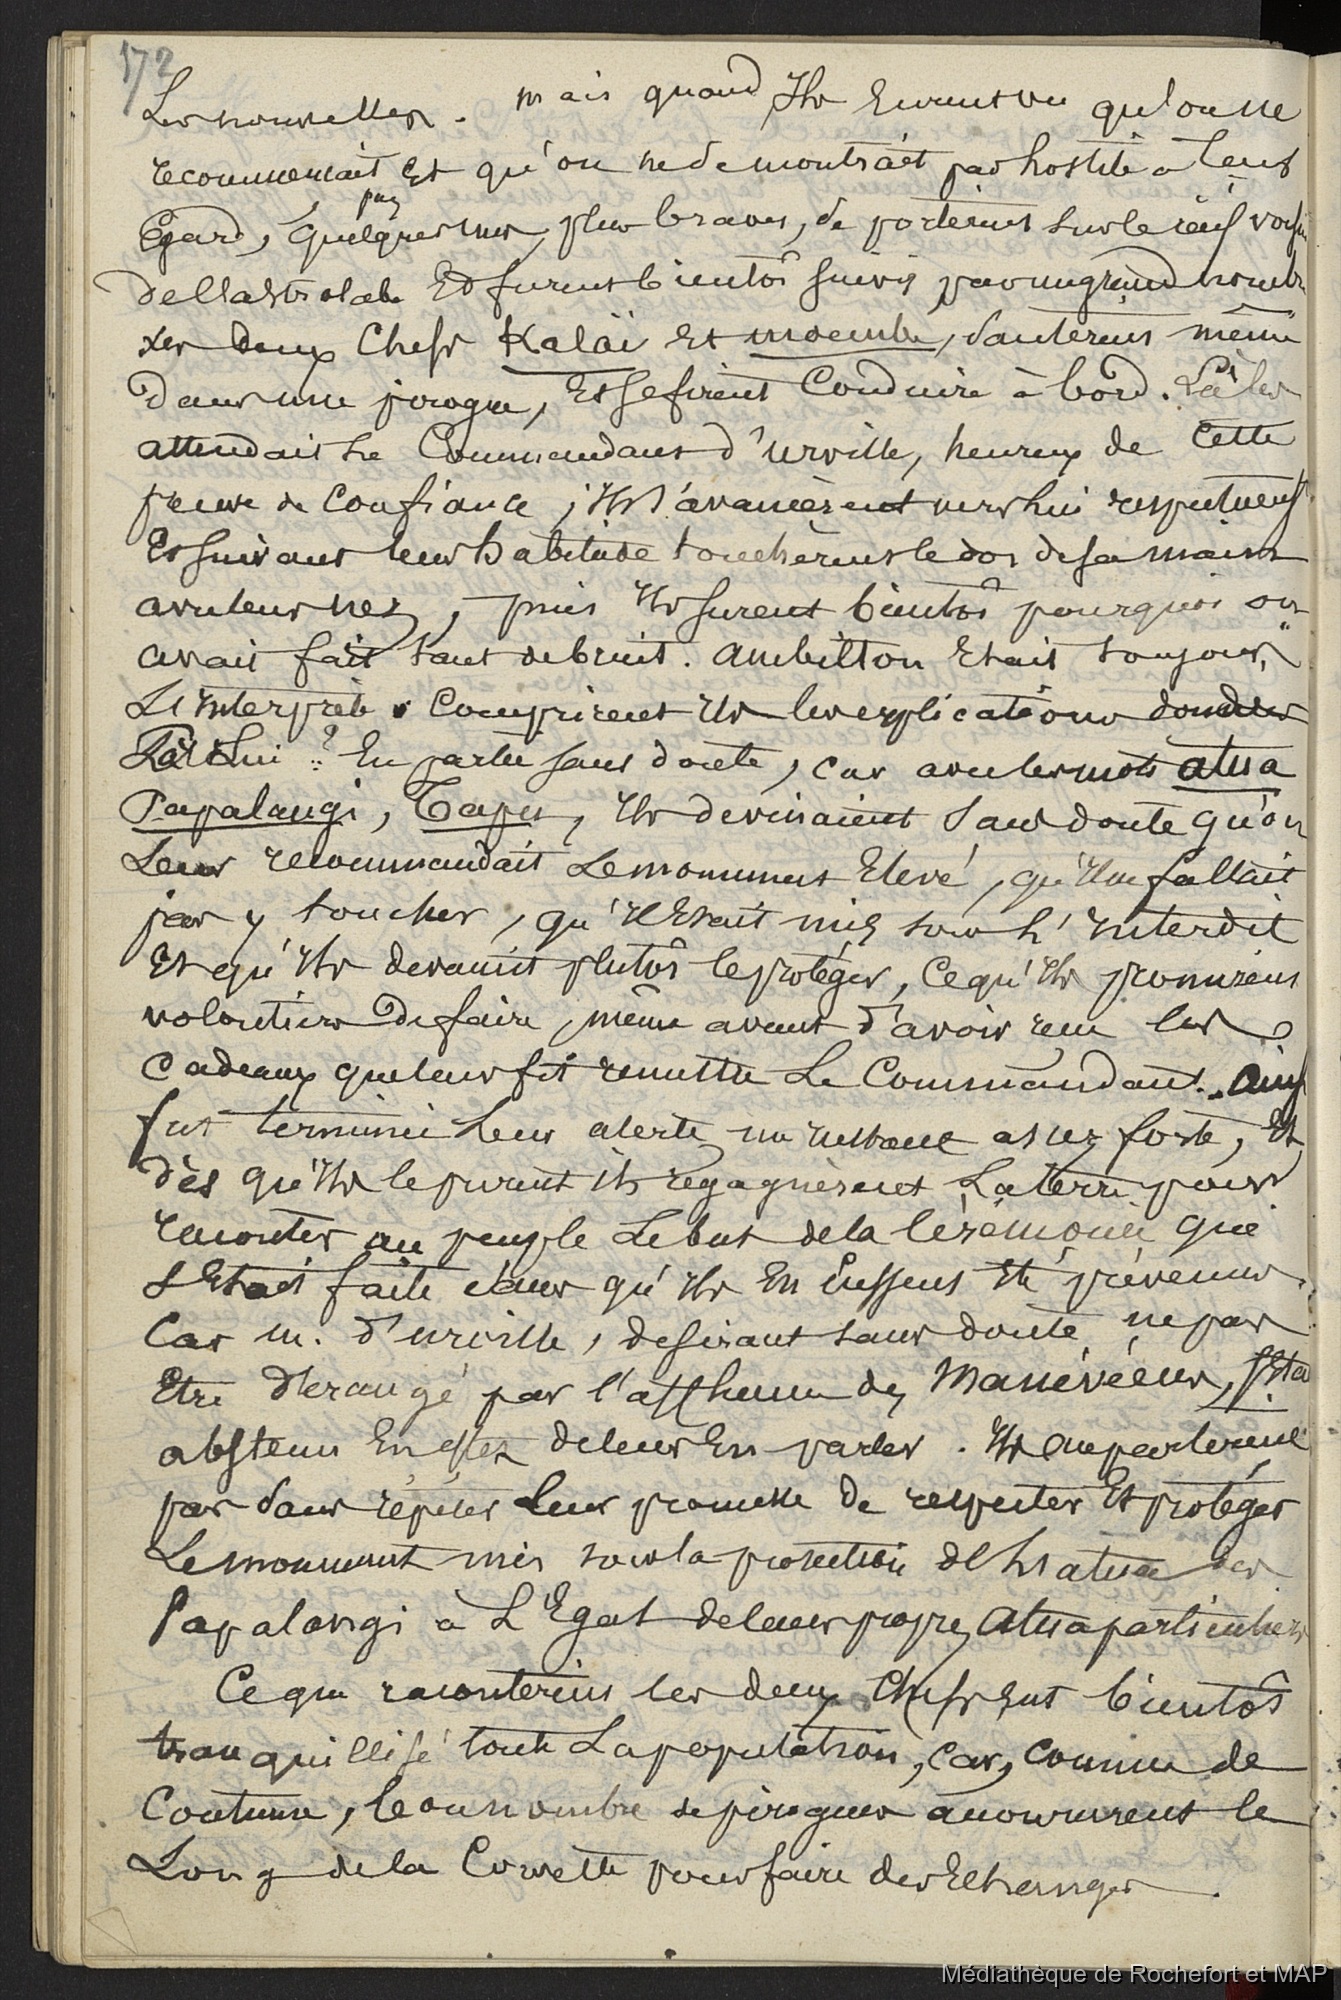 172
Les nouvelles. mais quand Ils Eurent vu qu'on ne
recommençait Et qu'on ne se montrait pas hostile a leur
pas
Egard, quelques uns, plus braves, se porterent sur le récif voisin
de l'astrolabe Et furent bientôt suivis par un grand nombre
Les deux Chefs Kalaï Et moembe, sauterent même
dans une pirogue, Et se firent Conduire à bord. Là les
attendait Le Commandant d'urville, heureux de cette
preuve de Confiance ; Ils s'avancèrent vers lui respectueux
Et suivant leur habitude touchèrent le dos de sa main
avec leur nez, puis Ils surent bientôt pourquoi on
avait fait tant de bruit. ambitton Etait toujours
L'Interprète. Comprirent Ils les explications données
Par Lui ? En partie sans doute, car avec les mots atua
Papalangi, Tapu, Ils devinaient sans doute qu'on
Leur recommandait Le monument Elevé, qu'Il ne fallait
pas y toucher, qu'Il Etait mis sous L'Interdit
Et qu'Ils devaient plutôt le protéger, Ce qu'Ils promirent
volontiers De faire, même avant d'avoir reçu les
Cadeaux que leur fit remettre Le Commandant. Ainsi
fut terminée Leur alerte un instant assez forte, Et
dès qu'Ils le purent ils regagnèrent La terre pour
raconter au peuple Le but de la Cérémonie qui
s'Etait faite sans qu'Ils En Eussent Eté prévenus.
Car m. d'urville, desirant sans doute ne pas
Etre dérangé par l'affluence des Manévéens, s'Eta
abstenu En effet de leur En parler. Ils ne partirent
pas sans répéter leur promesse de respecter Et protéger
Le monument mis sous la protection de Latua des
Papalangi à L'Egal de leurs propres Atua particuliers
Ce que raconterent les deux Chefs Eut bientôt
tranquillisé toute La population, car, comme de
Coutume, bon nombre de pirogues accoururent le
Long de la Corvette pour faire des Echanges.
Médiathèque de Rochefort et MAP